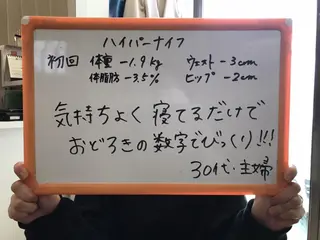 ハイパーナイフ
初回 体重 -1.9kg ウェスト -3cm
体脂肪 -3.5% ヒップ -2cm
気持ちよく寝てるだけで
おどろきの数字でびっくり!!!
30代・主婦